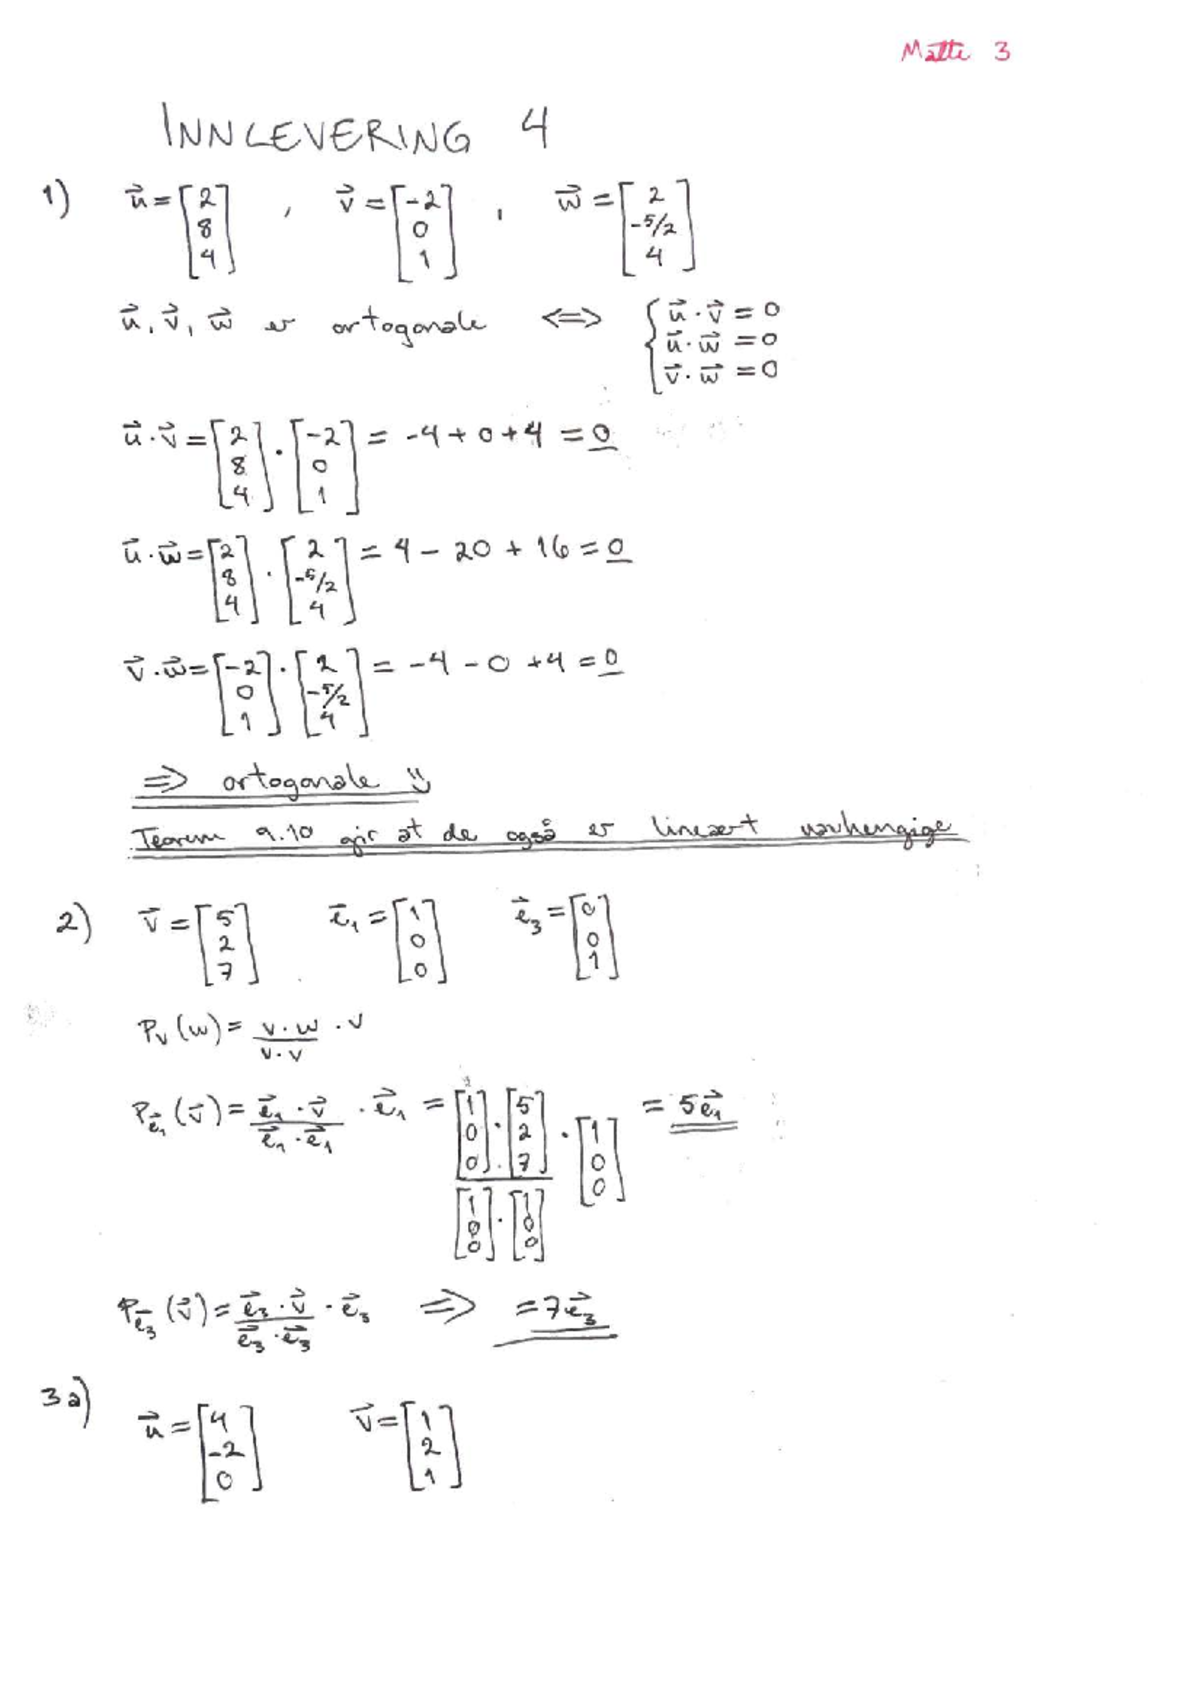 Matte 3
INNLEVERING 4
1) u⃗ = [2 8 4] , v⃗ = [-2 0 1] , w⃗ = [2 -5/2 4]
u⃗, v⃗, w⃗ er ortogonale ⟺ { u⃗ · v⃗ = 0
u⃗ · w⃗ = 0
v⃗ · w⃗ = 0
u⃗ · v⃗ = [2 8 4] · [-2 0 1] = -4 + 0 + 4 = 0
u⃗ · w⃗ = [2 8 4] · [2 -5/2 4] = 4 - 20 + 16 = 0
v⃗ · w⃗ = [-2 0 1] · [2 -5/2 4] = -4 - 0 + 4 = 0
⟹ ortogonale
Teorem 9.10 gir at de også er lineært uavhengige
2) v⃗ = [5 2 7] e⃗₁ = [1 0 0] e⃗₃ = [0 0 1]
Pᵥ(w) = (v · w)/(v · v) · v
P_e⃗₁(v⃗) = (e⃗₁ · v⃗)/(e⃗₁ · e⃗₁) · e⃗₁ = ([1 0 0] · [5 2 7])/([1 0 0] · [1 0 0]) · [1 0 0] = 5e⃗₁
P_e⃗₃(v⃗) = (e⃗₃ · v⃗)/(e⃗₃ · e⃗₃) · e⃗₃ ⟹ = 7e⃗₃
3a) u⃗ = [4 -2 0] v⃗ = [1 2 1]